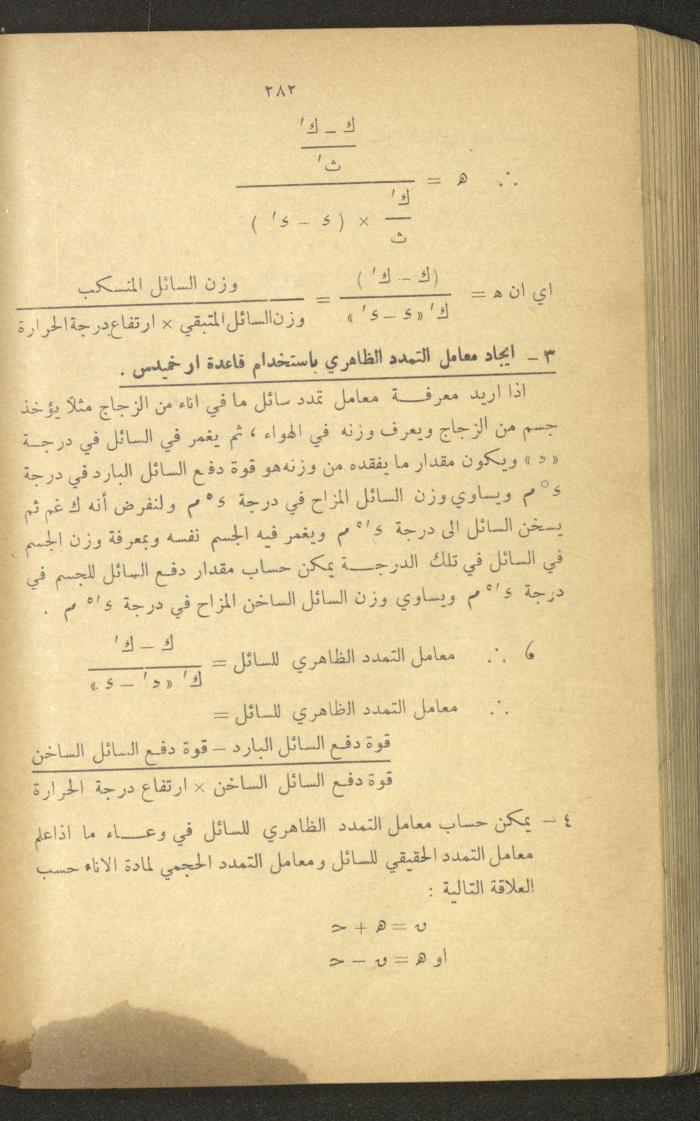 ٢٨٢
ك − ك′
ث′
∴ ه =
ك′
ث × (د − د′)
اي ان ه = (ك − ك′) = وزن السائل المنسكب
ك′ «د − د′» وزن السائل المتبقي × ارتفاع درجة الحرارة
٣ − ايجاد معامل التمدد الظاهري باستخدام قاعدة ارخميدس .
اذا اريد معرفة معامل تمدد سائل ما في اناء من الزجاج مثلا يؤخذ
جسم من الزجاج ويعرف وزنه في الهواء ، ثم يغمر في السائل في درجة
«د» ويكون مقدار ما يفقده من وزنه هو قوة دفع السائل البارد في درجة
د° م ويساوي وزن السائل المزاح في درجة د° م ولنفرض أنه ك غم ثم
يسخن السائل الى درجة د′° م ويغمر فيه الجسم نفسه وبمعرفة وزن الجسم
في السائل في تلك الدرجة يمكن حساب مقدار دفع السائل للجسم في
درجة د′° م ويساوي وزن السائل الساخن المزاح في درجة د′° م .
∴ معامل التمدد الظاهري للسائل = ك − ك′
ك′ «د′ − د»
∴ معامل التمدد الظاهري للسائل =
قوة دفع السائل البارد − قوة دفع السائل الساخن
قوة دفع السائل الساخن × ارتفاع درجة الحرارة
٤ − يمكن حساب معامل التمدد الظاهري للسائل في وعاء ما اذاعلم
معامل التمدد الحقيقي للسائل ومعامل التمدد الحجمي لمادة الاناء حسب
العلاقة التالية :
ق = ه + ح
او ه = ق − ح